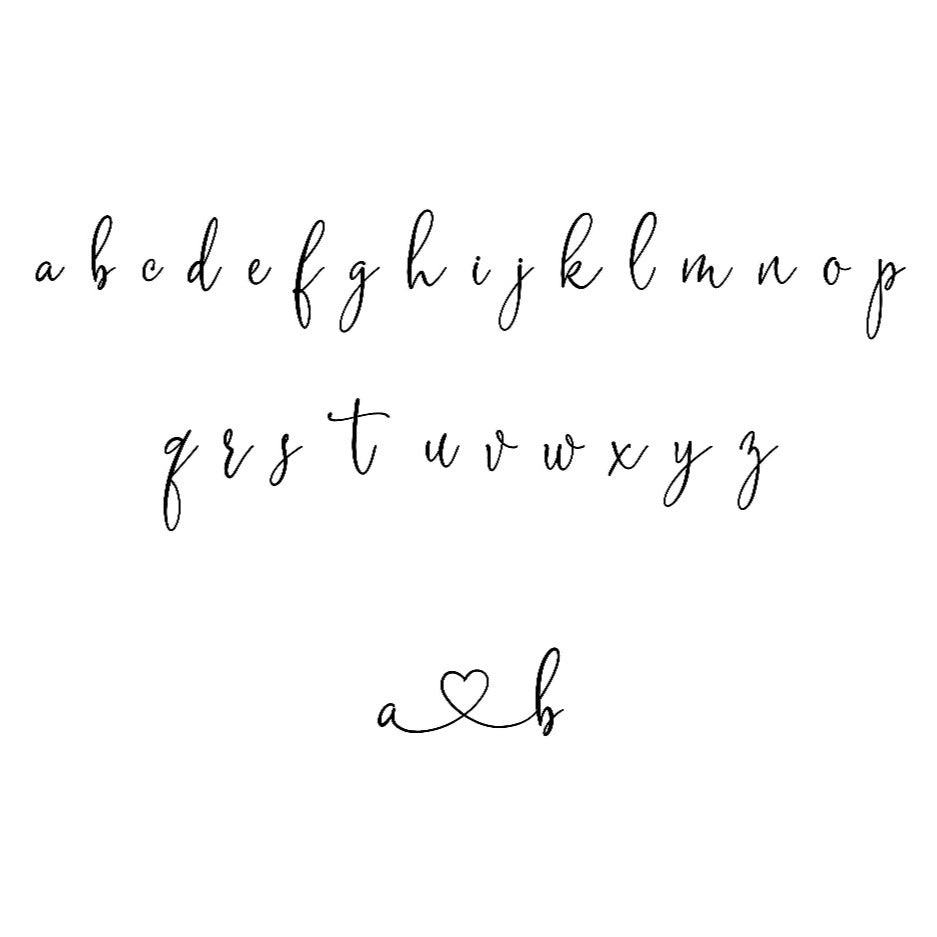 a b c d e f g h i j k l m n o p
q r s t u v w x y z
a♡b